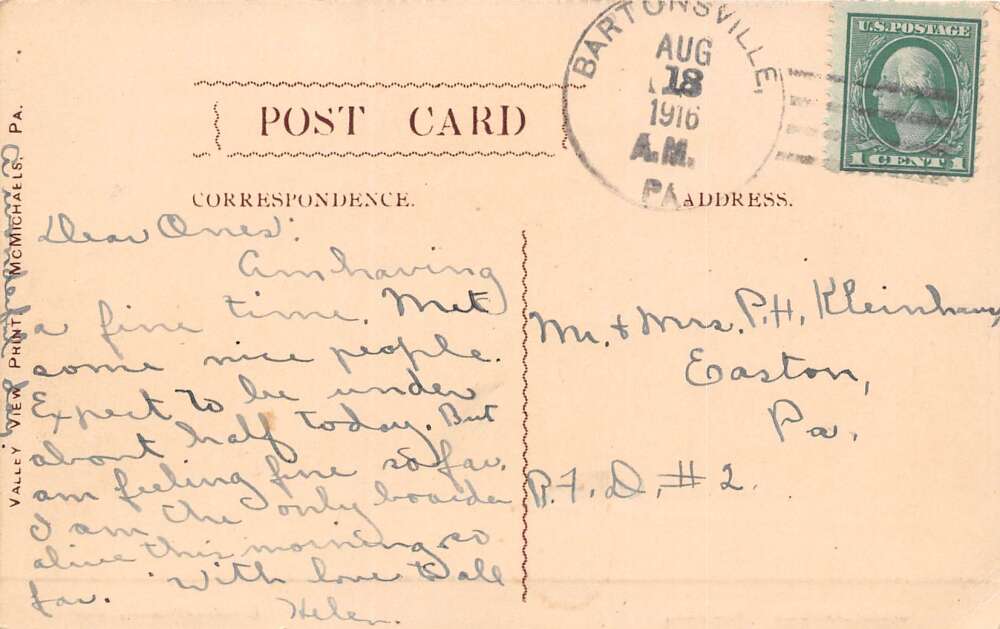 BARTONSVILLE,
AUG
18
1916
A.M.
PA
U.S. POSTAGE
1 CENT 1
POST CARD
CORRESPONDENCE.
ADDRESS.
Dear Ones:
Am having
a fine time. Met
some nice people.
Expect to be under
about half today. But
am feeling fine so far.
I am the only boarder
alive this morning so
far. With love to all
Helen.
Mr. & Mrs. P.H. Kleinhans
Easton,
Pa.
R.F.D. #2.
VALLEY VIEW PRINT, MCMICHAELS, PA.